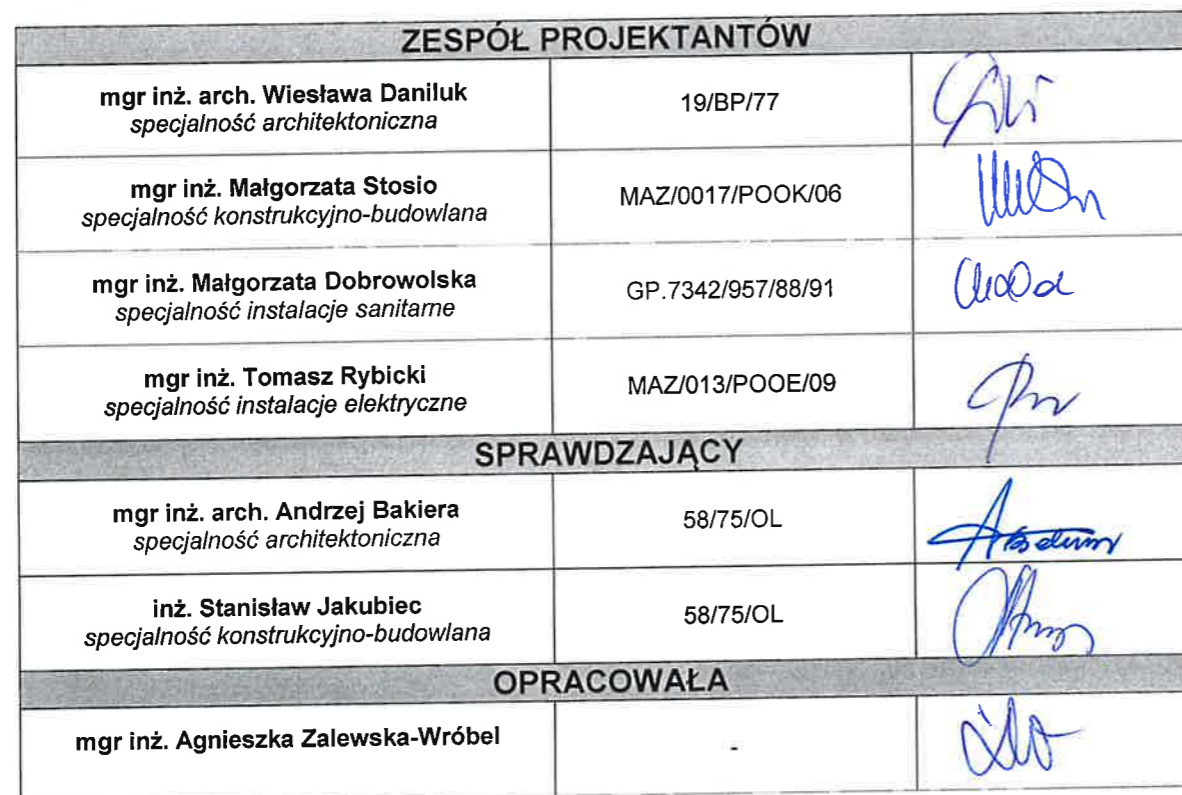 ZESPÓŁ PROJEKTANTÓW
mgr inż. arch. Wiesława Daniluk
specjalność architektoniczna
19/BP/77
mgr inż. Małgorzata Stosio
specjalność konstrukcyjno-budowlana
MAZ/0017/POOK/06
mgr inż. Małgorzata Dobrowolska
specjalność instalacje sanitarne
GP.7342/957/88/91
mgr inż. Tomasz Rybicki
specjalność instalacje elektryczne
MAZ/013/POOE/09
SPRAWDZAJĄCY
mgr inż. arch. Andrzej Bakiera
specjalność architektoniczna
58/75/OL
inż. Stanisław Jakubiec
specjalność konstrukcyjno-budowlana
58/75/OL
OPRACOWAŁA
mgr inż. Agnieszka Zalewska-Wróbel
-